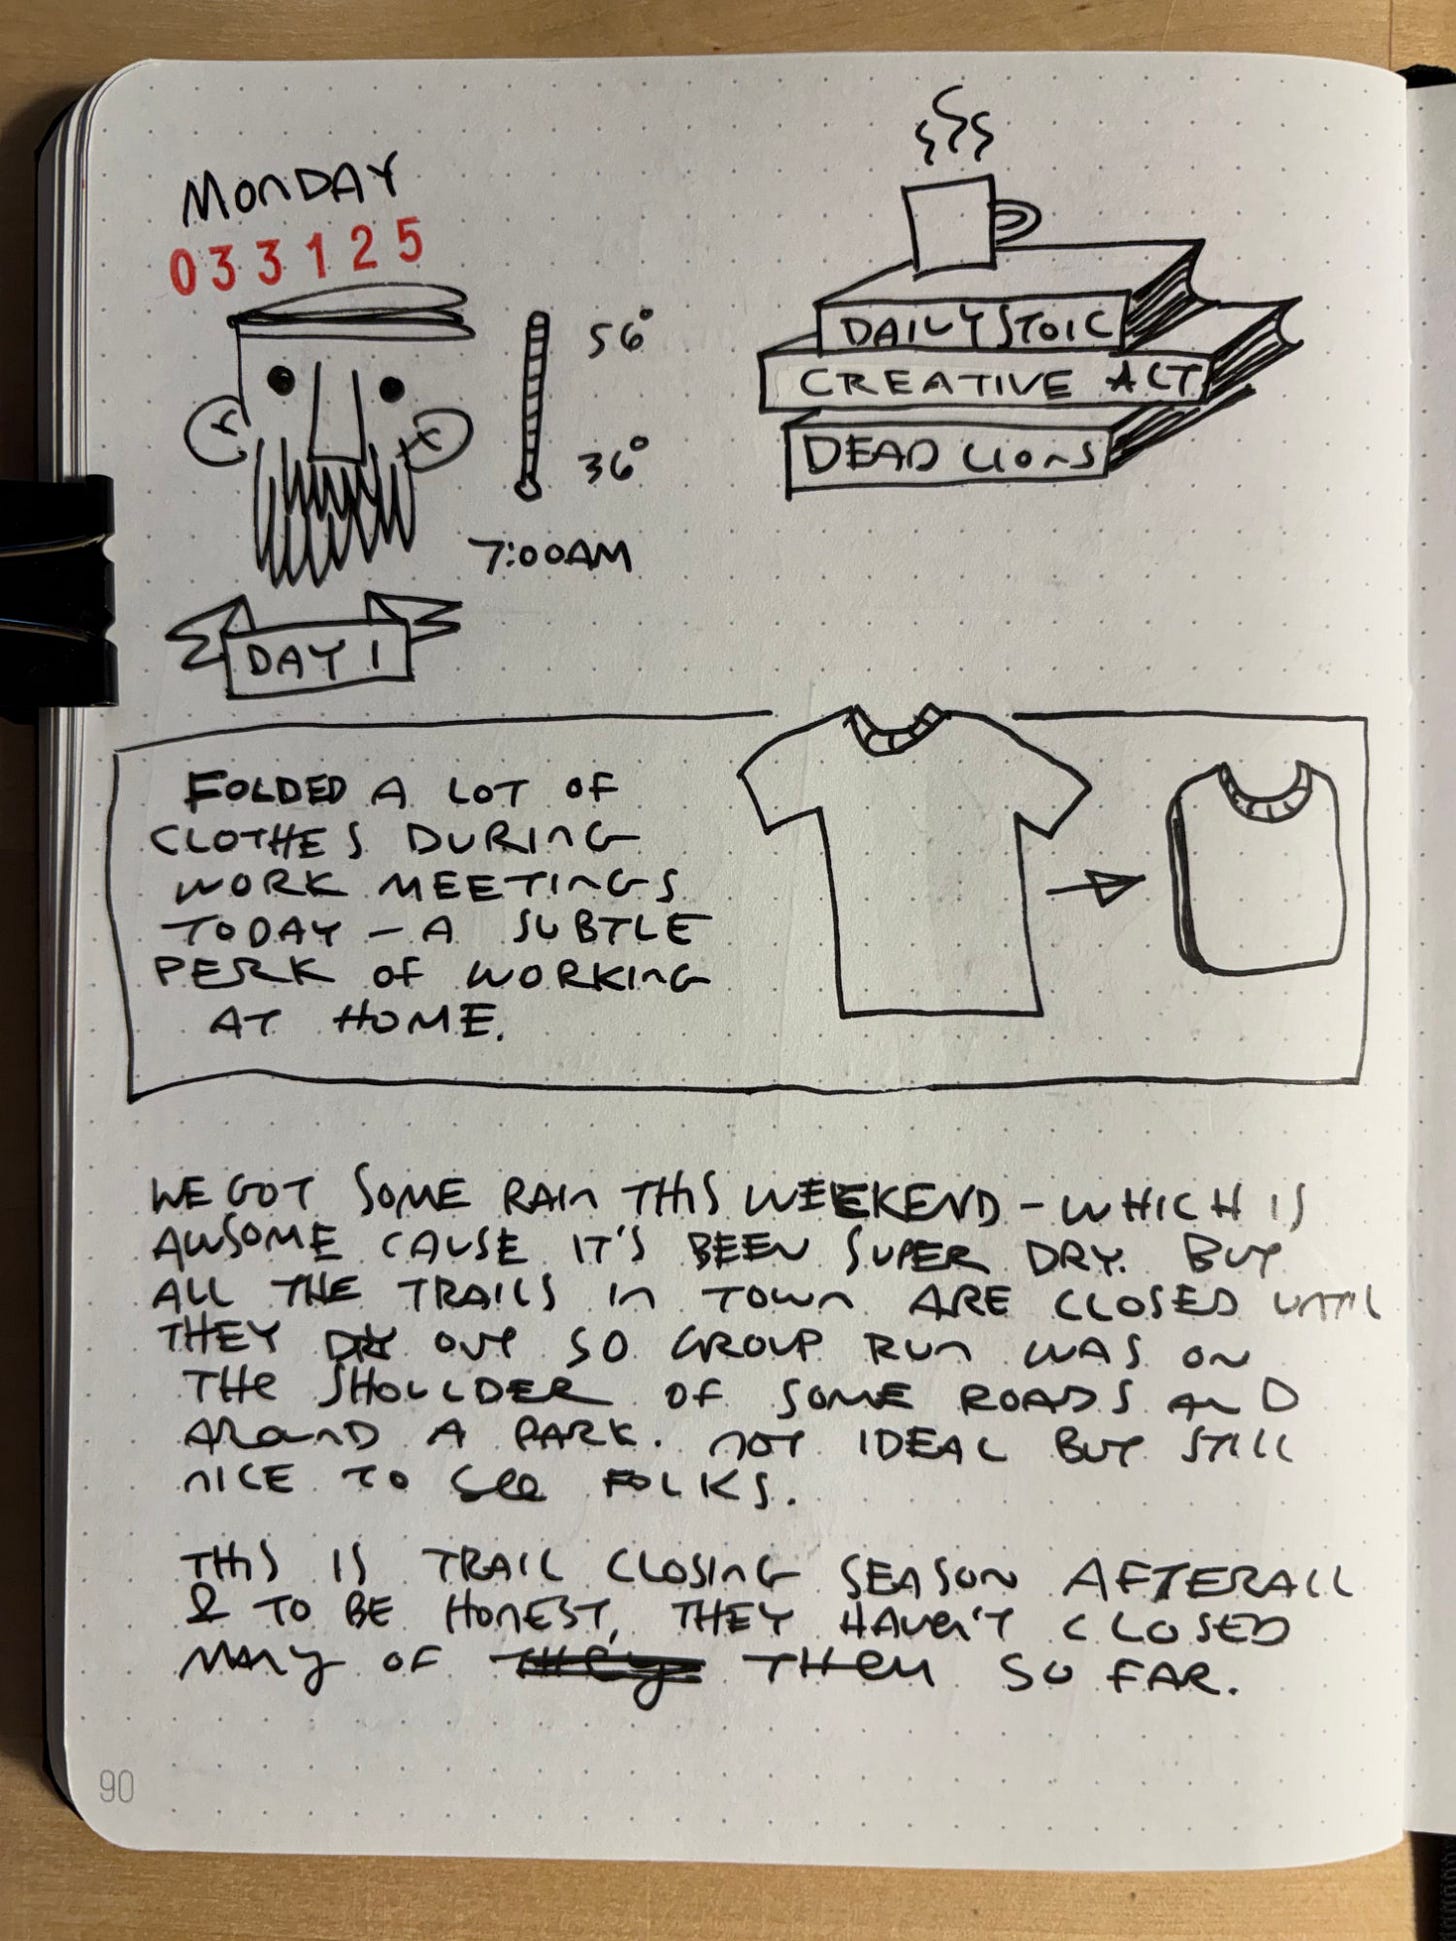 MONDAY
033125
56°
36°
7:00AM
DAY 1
DAILY STOIC
CREATIVE ACT
DEAD LIONS
FOLDED A LOT OF
CLOTHES DURING
WORK MEETINGS
TODAY – A SUBTLE
PERK OF WORKING
AT HOME.
WE GOT SOME RAIN THIS WEEKEND – WHICH IS
AWSOME CAUSE IT'S BEEN SUPER DRY. BUT
ALL THE TRAILS IN TOWN ARE CLOSED UNTIL
THEY DRY OUT SO GROUP RUN WAS ON
THE SHOULDER OF SOME ROADS AND
AROUND A PARK. NOT IDEAL BUT STILL
NICE TO SEE FOLKS.
THIS IS TRAIL CLOSING SEASON AFTERALL
& TO BE HONEST, THEY HAVEN'T CLOSED
MANY OF THEY THEM SO FAR.
90